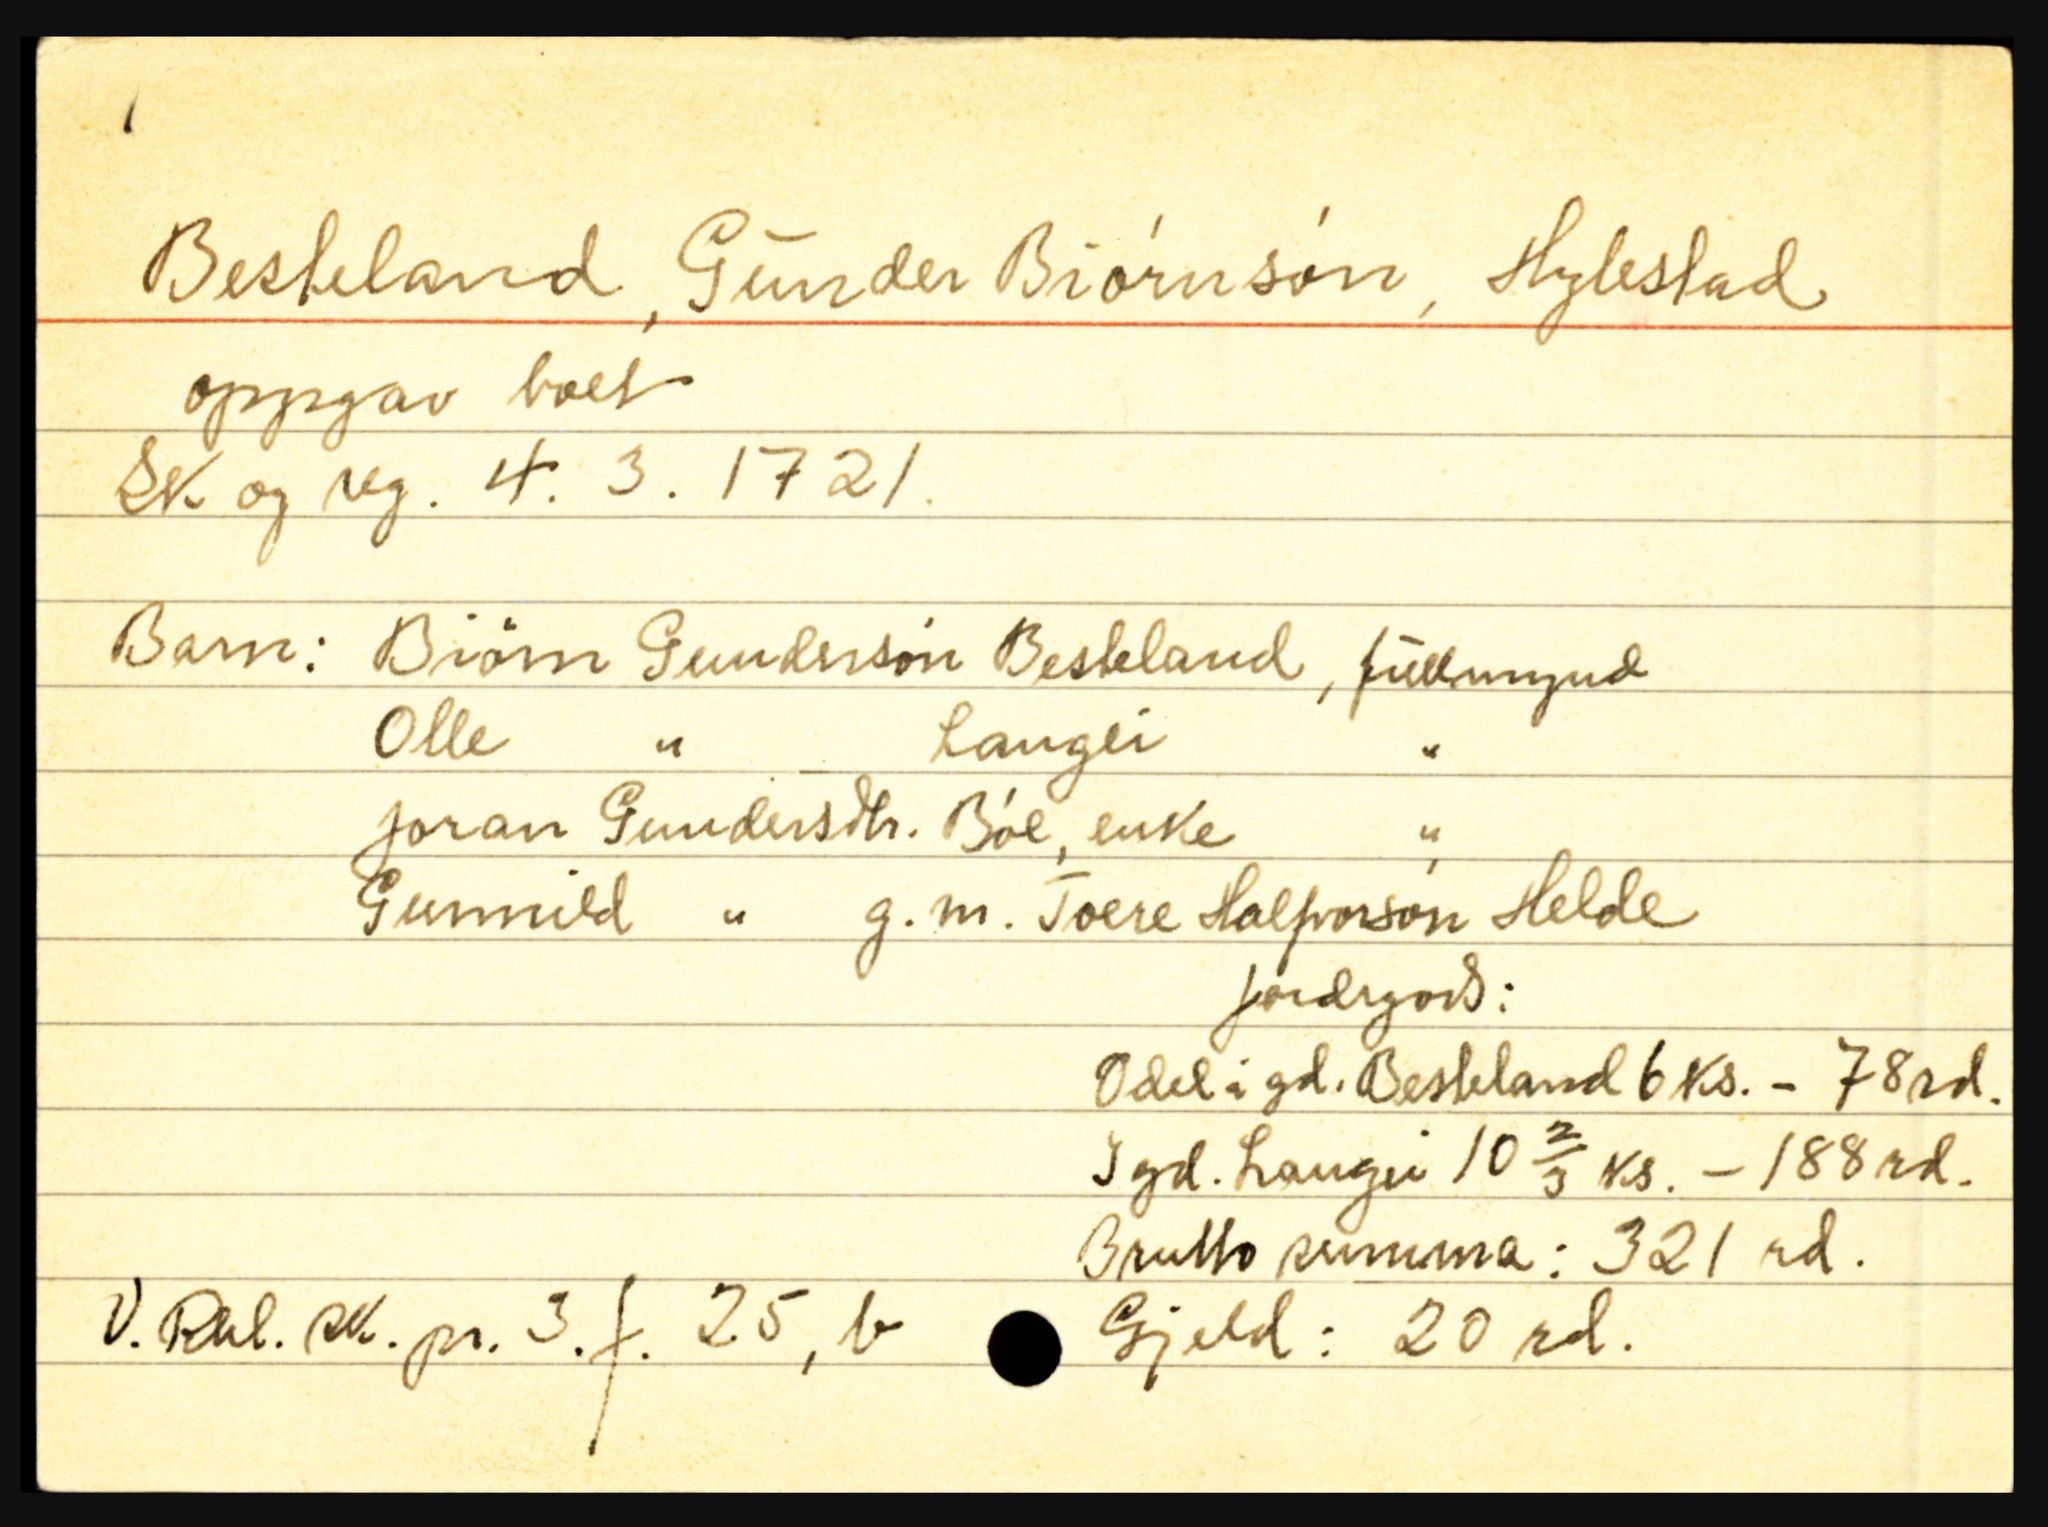 Besteland, Gunder Biórnsón, Hylestad
oppgav boet
Sk og reg. 4. 3. 1721.
Barn: Biörn Gundersön Besteland, fullmynd
Olle " Langei "
Joran Gundersdtr. Bóe, enke "
Gunnild " g. m. Toere Halfvorsón Helde
Jordegods:
Odel i gd. Besteland 6 ks. - 78 rd.
I gd. Langei 10 2/3 ks. - 188 rd.
Brutto summa: 321 rd.
V. Rbl. sk. pr. 3. f. 25, b Gjeld: 20 rd.